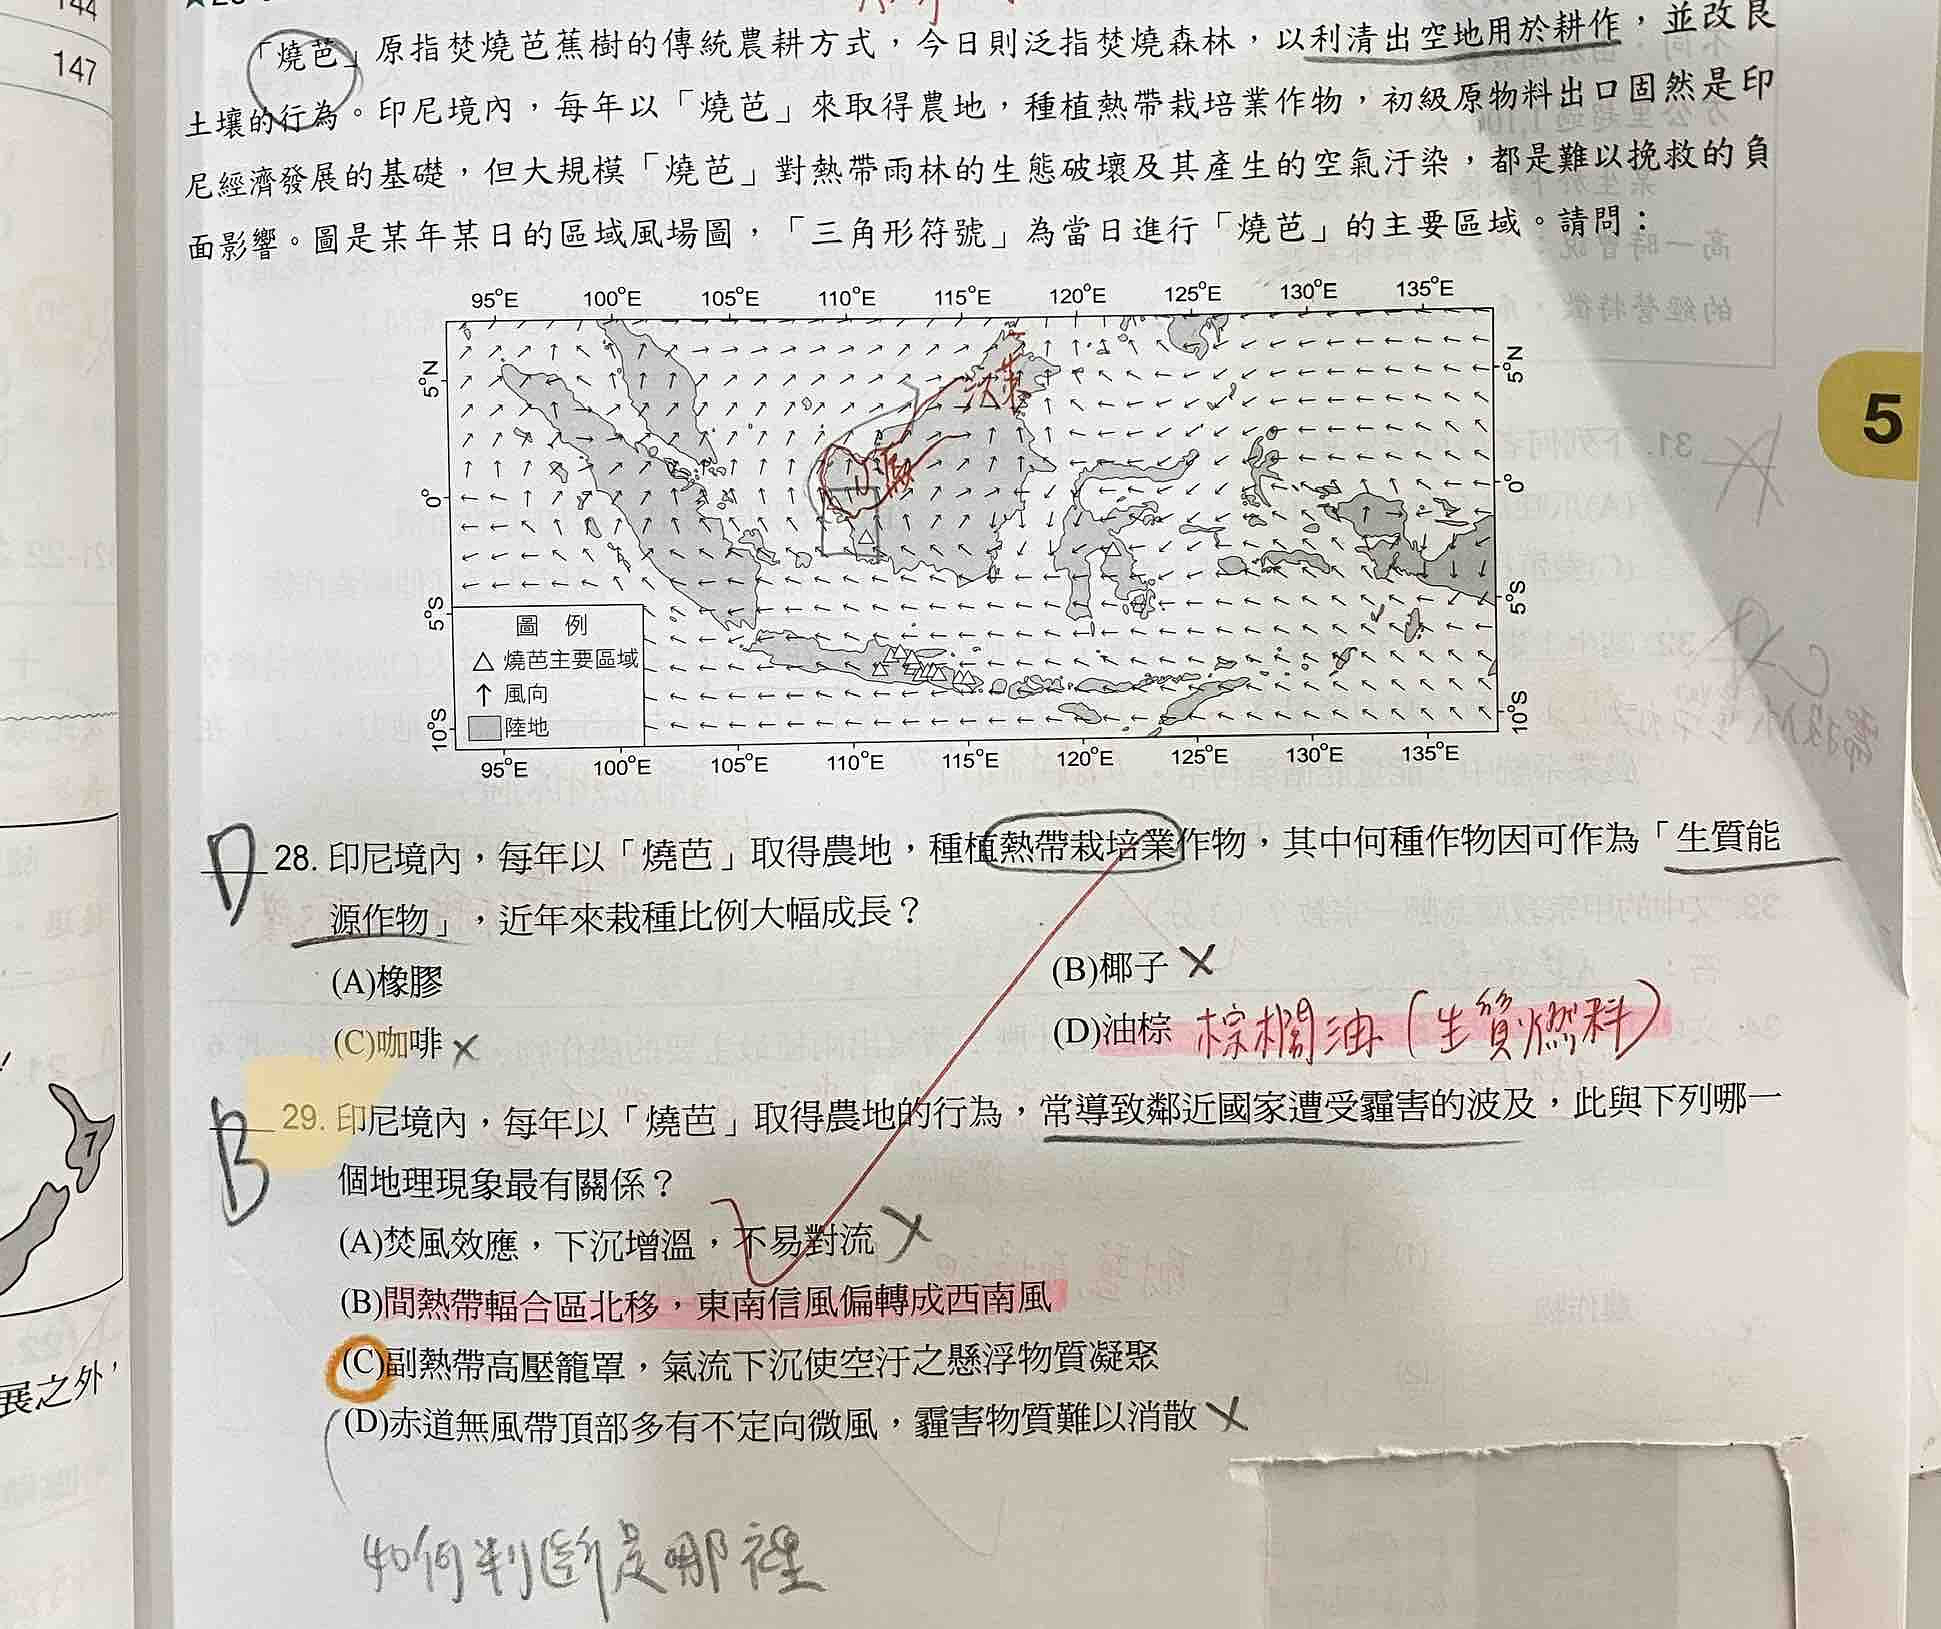 144
147
「燒芭」原指焚燒芭蕉樹的傳統農耕方式,今日則泛指焚燒森林,以利清出空地用於耕作,並改良
土壤的行為。印尼境內,每年以「燒芭」來取得農地,種植熱帶栽培業作物,初級原物料出口固然是印
尼經濟發展的基礎,但大規模「燒芭」對熱帶雨林的生態破壞及其產生的空氣汙染,都是難以挽救的負
面影響。圖是某年某日的區域風場圖,「三角形符號」為當日進行「燒芭」的主要區域。請問:
95°E 100°E 105°E 110°E 115°E 120°E 125°E 130°E 135°E
5°N 5°N
0° 0°
5°S 5°S
10°S 10°S
圖 例
△ 燒芭主要區域
↑ 風向
陸地
95°E 100°E 105°E 110°E 115°E 120°E 125°E 130°E 135°E
5
D 28. 印尼境內,每年以「燒芭」取得農地,種植熱帶栽培業作物,其中何種作物因可作為「生質能
源作物」,近年來栽種比例大幅成長?
(A)橡膠 (B)椰子 ×
(C)咖啡 × (D)油棕 棕櫚油(生質燃料)
B 29. 印尼境內,每年以「燒芭」取得農地的行為,常導致鄰近國家遭受霾害的波及,此與下列哪一
個地理現象最有關係?
(A)焚風效應,下沉增溫,不易對流 ×
(B)間熱帶輻合區北移,東南信風偏轉成西南風
(C)副熱帶高壓籠罩,氣流下沉使空汙之懸浮物質凝聚
(D)赤道無風帶頂部多有不定向微風,霾害物質難以消散 ×
如何判斷是哪裡
展之外,